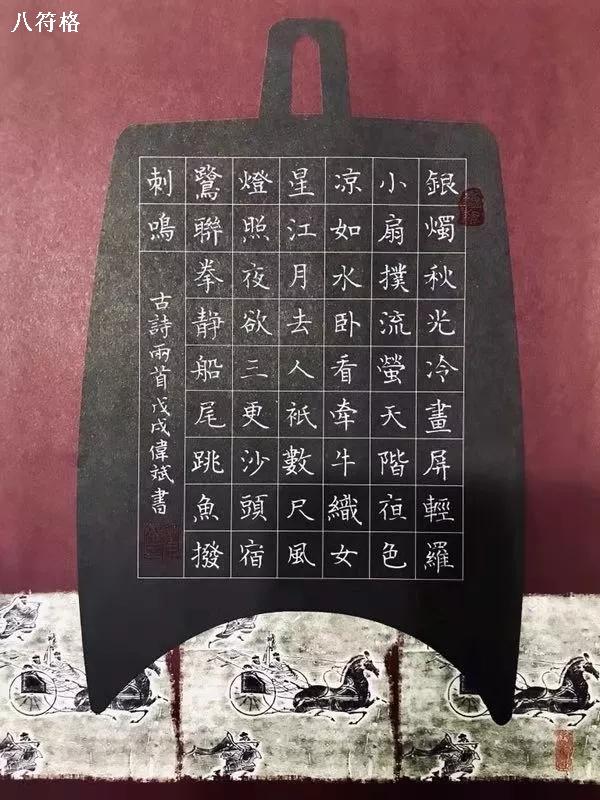 八符格
銀燭秋光冷畫屏輕羅
小扇撲流螢天階亱色
凉如水卧看牽牛織女
星江月去人衹數尺風
燈照夜欲三更沙頭宿
鷺聯拳靜船尾跳魚撥
刺鳴
古詩兩首戊戌偉斌書